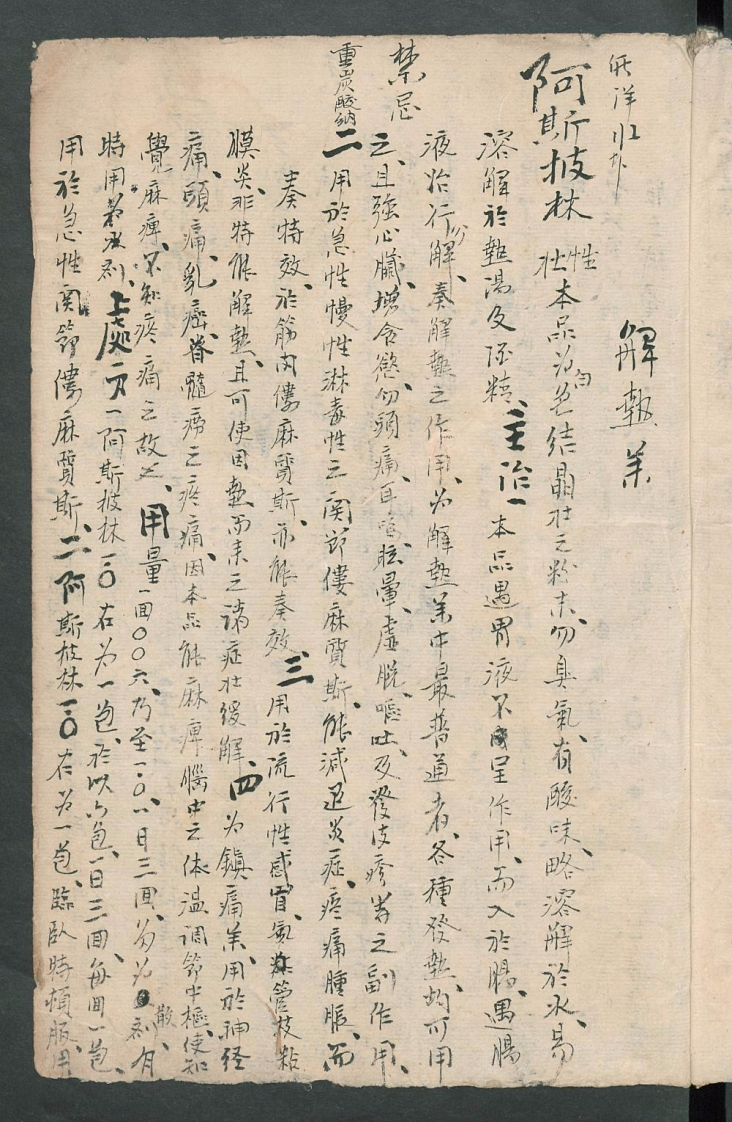 解熱薬
阿斯披林 性壮本品為白色結晶壮之粉末勿臭氣、有酸味、略溶解於水、易
溶解於熱湯及酒精、主治一本品遇胃液不呈作用、而入於腸、遇腸
液始行分解、奏解熱之作用、為解熱薬中最普通者、各種發熱、均可用
禁忌
之、且強心臟、增食慾、勿頭痛、耳鳴、眩暈、虚脱、嘔吐、及發皮疹等之副作用、
重炭酸納
二用於急性慢性淋毒性之関節僂麻質斯、能減退炎症、疼痛腫脹、而
奏特效、於筋肉僂麻質斯、亦能奏效、三用於流行性感冒、氣管枝粘
膜炎、非特能解熱、且可使因熱而来之諸症壮緩解、四為鎮痛薬、用於神経
痛、頭痛、乳癌、脊髓癆之疼痛、因本品能麻痺腦中之体温調節中樞、使知
覺麻痺、不知疼痛之故也、用量一回〇〇六、乃至一・〇、一日三回、為散剤、有
時用剤、上處方一阿斯披林一〇右為一包、於以六包、一日三回、每回一包、
用於急性関節僂麻質斯、二阿斯披林一〇右為一包、臨臥時頓服、用